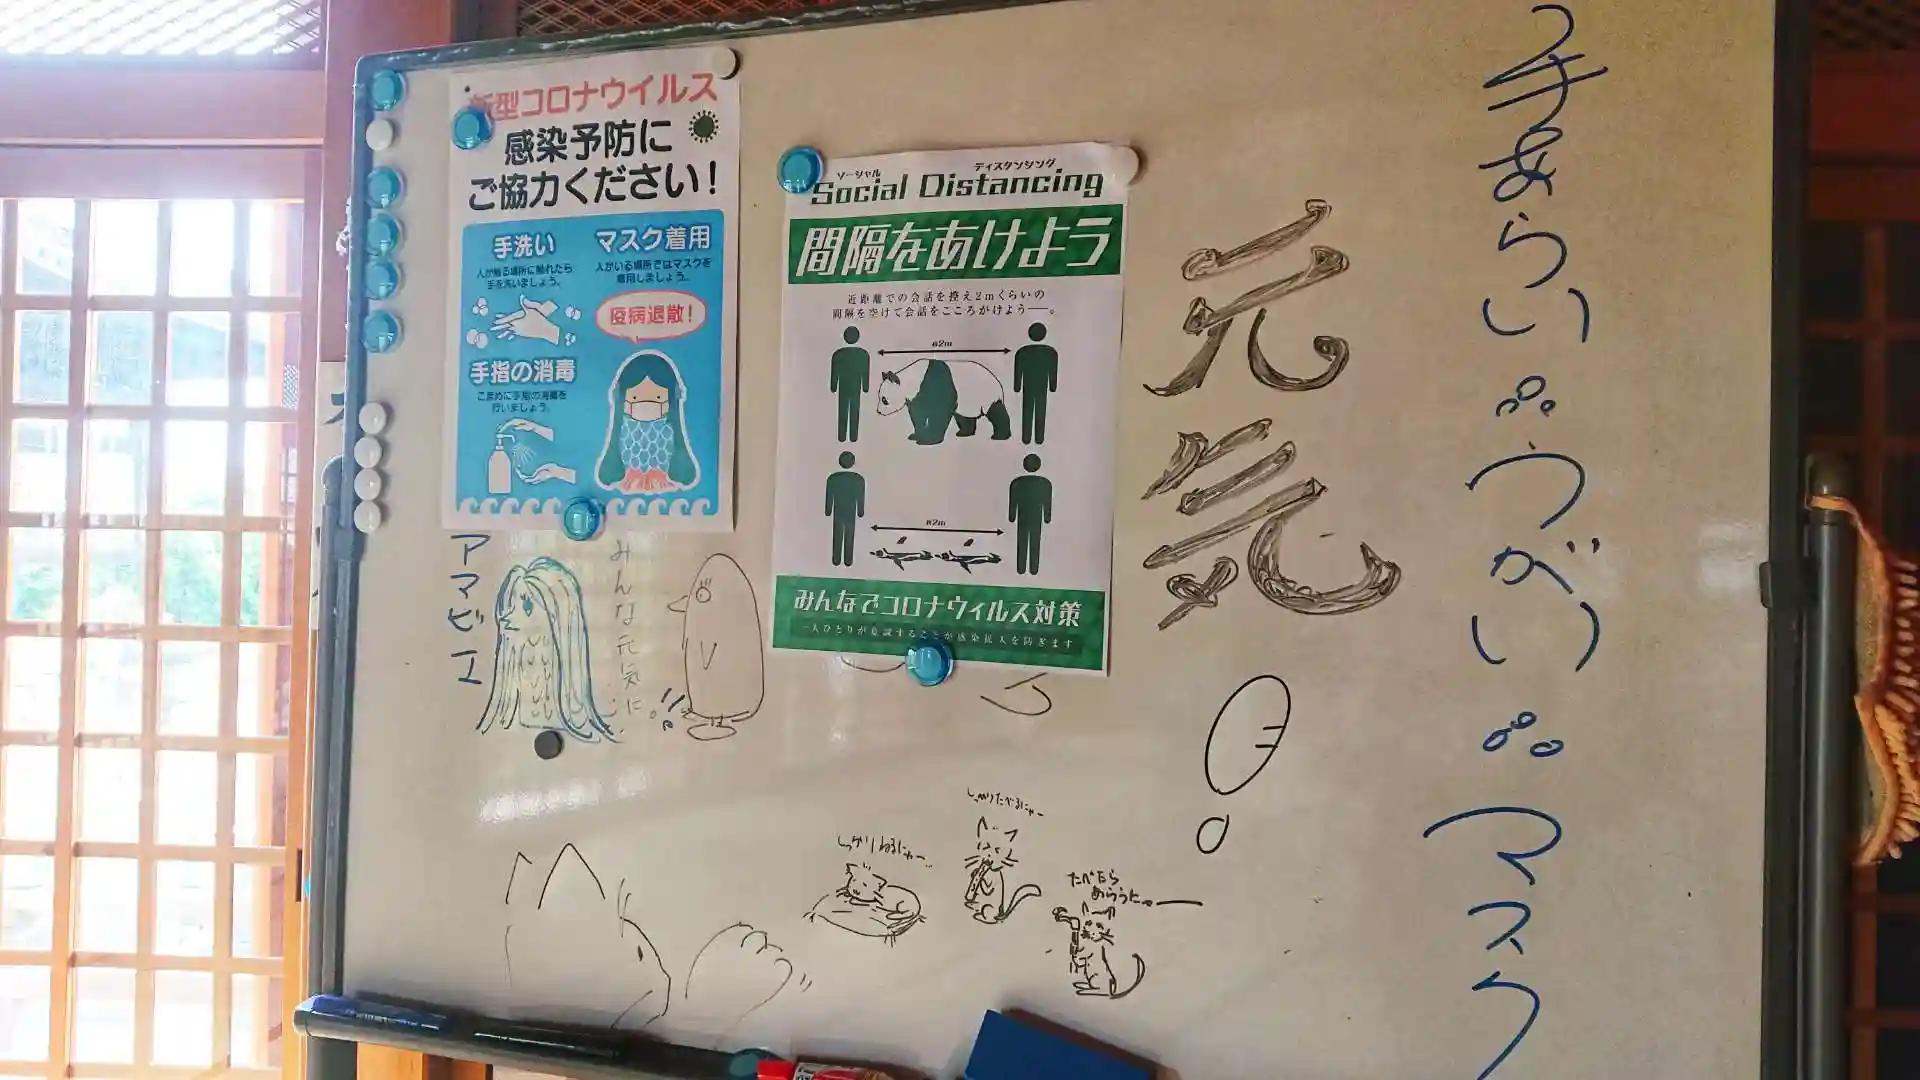 新型コロナウイルス
感染予防に
ご協力ください！
手洗い
人が触る場所に触れたら
手を洗いましょう。
マスク着用
人がいる場所ではマスクを
着用しましょう。
疫病退散！
手指の消毒
こまめに手指の消毒を
行いましょう。
ソーシャル ディスタンシング
Social Distancing
間隔をあけよう
近距離での会話を控え2mくらいの
間隔を空けて会話をこころがけよう──。
約2m
約2m
みんなでコロナウィルス対策
一人ひとりが意識することが感染拡大を防ぎます
手あらい うがい マスク
元気
アマビエ
みんな元気に
しっかりねるにゃー
しっかりたべるにゃー
たべたら
あらうにゃー